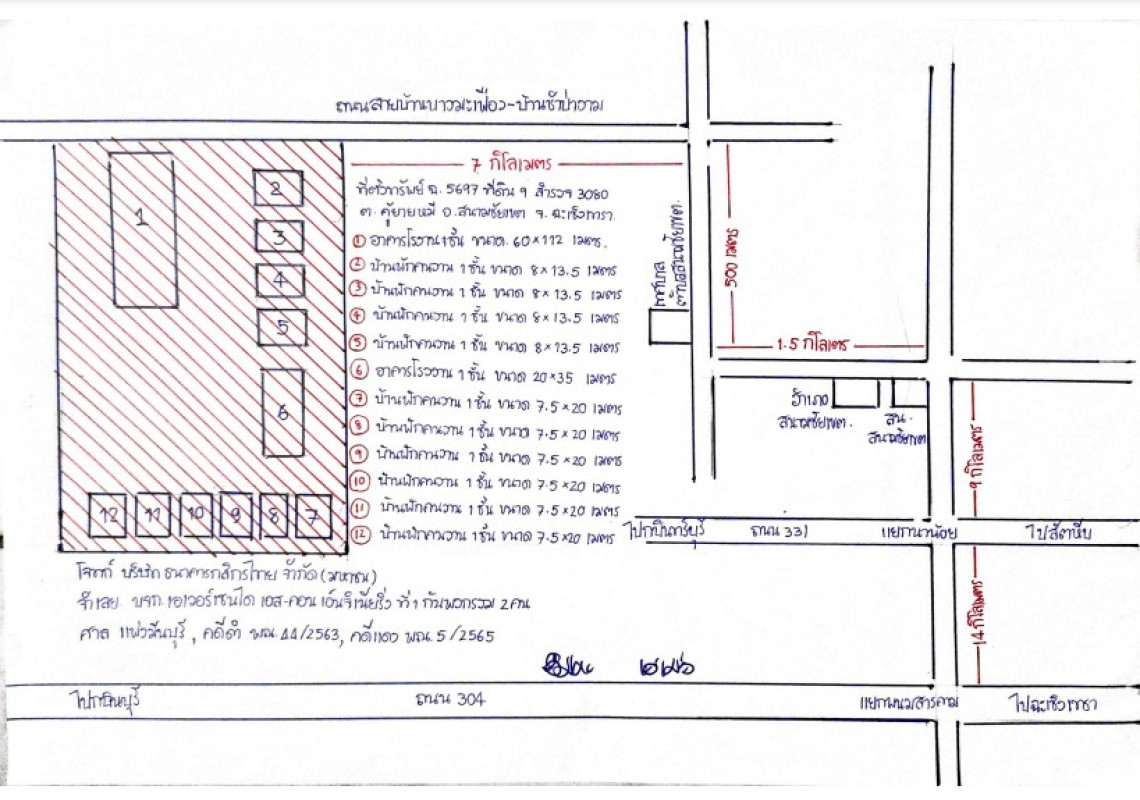 ถนนสายบ้านบางมะเฟือง-บ้านชำป่างาม
7 กิโลเมตร
ที่ตั้งทรัพย์ ฉ. 5697 ที่ดิน 9 สำรวจ 3080
ต. คู้ยายหมี อ.สนามชัยเขต จ. ฉะเชิงเทรา.
① อาคารโรงงาน 1ชั้น ขนาด. 60×112 เมตร.
② บ้านพักคนงาน 1 ชั้น ขนาด 8×13.5 เมตร
③ บ้านพักคนงาน 1 ชั้น ขนาด 8×13.5 เมตร
④ บ้านพักคนงาน 1 ชั้น ขนาด 8×13.5 เมตร
⑤ บ้านพักคนงาน 1 ชั้น ขนาด 8×13.5 เมตร
⑥ อาคารโรงงาน 1 ชั้น ขนาด 20×35 เมตร
⑦ บ้านพักคนงาน 1 ชั้น ขนาด 7.5×20 เมตร
⑧ บ้านพักคนงาน 1 ชั้น ขนาด 7.5×20 เมตร
⑨ บ้านพักคนงาน 1 ชั้น ขนาด 7.5×20 เมตร
⑩ บ้านพักคนงาน 1 ชั้น ขนาด 7.5×20 เมตร
⑪ บ้านพักคนงาน 1 ชั้น ขนาด 7.5×20 เมตร
⑫ บ้านพักคนงาน 1 ชั้น ขนาด 7.5×20 เมตร
1
2
3
4
5
6
12 11 10 9 8 7
เทศบาล
ตำบลสนามชัยเขต.
500 เมตร
1.5 กิโลเมตร
อำเภอ
สนามชัยเขต.
สน.
สนามชัยเขต
9 กิโลเมตร
ไปกบินทร์บุรี ถนน 331 แยกนาน้อย ไปสัตหีบ
14 กิโลเมตร
โจทก์ บริษัท ธนาคารกสิกรไทย จำกัด (มหาชน)
จำเลย. บจก. เอเวอร์ซายน์ได เอส-คอน เอ็นจิเนียริ่ง ที่ 1 กับพวกรวม 2คน
ศาล แพ่งมีนบุรี , คดีดำ ผบ. 44/2563, คดีแดง ผบ. 5/2565
ไปกบินบุรี ถนน 304 แยกพนมสารคาม ไปฉะเชิงเทรา